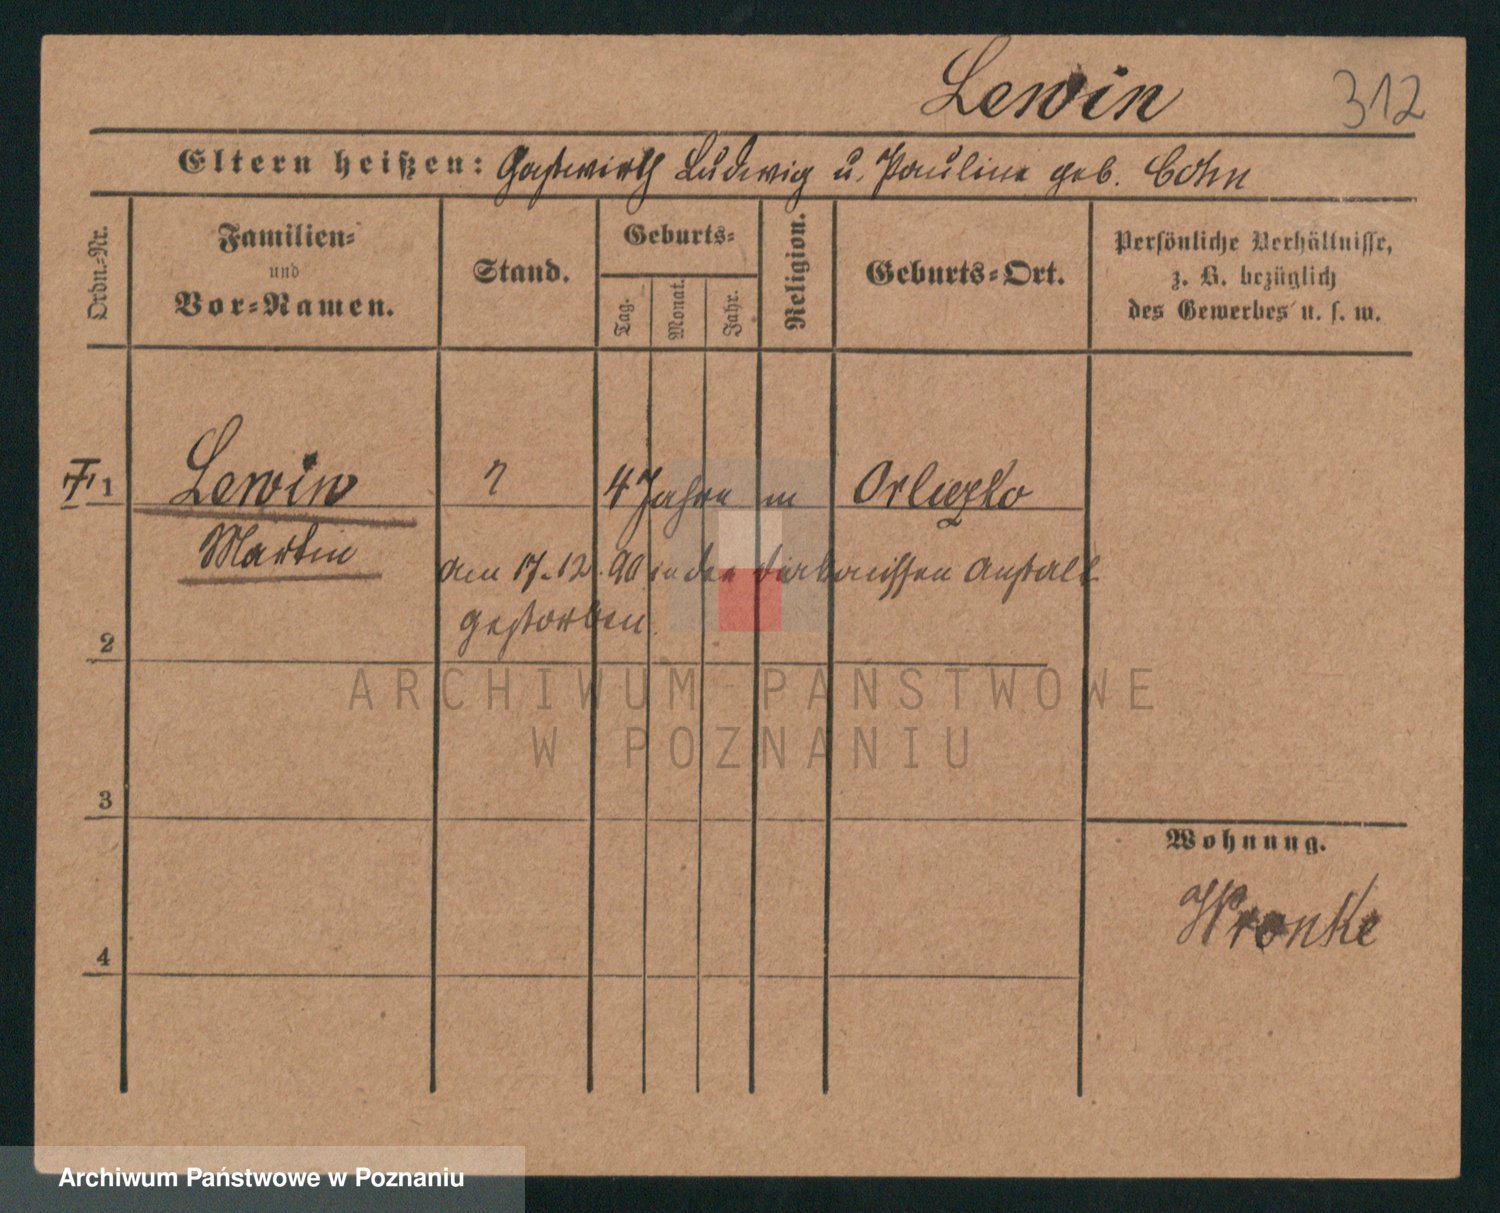 Lewin 312
Eltern heißen: Gastwirth Ludwig u. Pauline geb. Cohn
Ordn.-Nr.
Familien-
und
Vor-Namen.
Stand.
Geburts-
Tag.
Monat.
Jahr.
Religion.
Geburts-Ort.
Persönliche Verhältnisse,
z. B. bezüglich
des Gewerbes u. s. w.
1 Lewin ? 4 Jahre m
Martin
am 17.12.90 in der Diakonissen Anstalt
gestorben.
2
ARCHIWUM PAŃSTWOWE
W POZNANIU
3
Wohnung.
Wronke
4
Archiwum Państwowe w Poznaniu